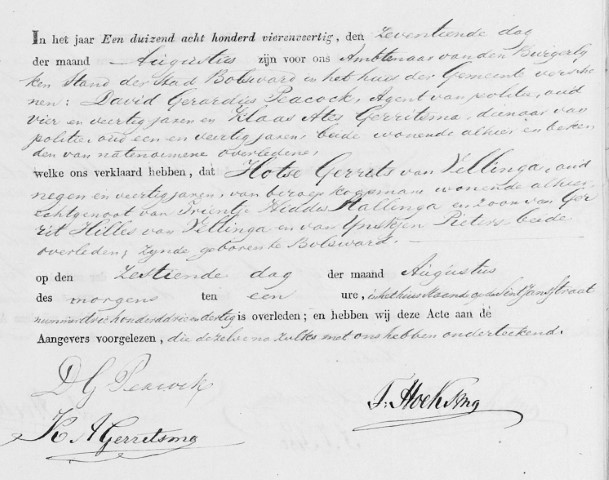 In het jaar Een duizend acht honderd vierenveertig, den zeventiende dag
der maand Augustus zijn voor ons Ambtenaar van den Burgerly
ken Stand der Stad Bolsward in het huis der Gemeente versche
nen: David Gerardus Peacock, Agent van politie, oud
vier en veertig jaren en Klaas Ates Gerritsma, dienaar van
politie, oud een en veertig jaren, beide wonende alhier en beken
den van natenoemene overledene,
welke ons verklaard hebben, dat Hotse Gerrits van Vellinga, oud
negen en veertig jaren, van beroep koopman wonende alhier,
echtgenoot van Trientje Hiddes Hallinga en zoon van Ger
rit Hilles van Vellinga en van Ynskjen Pieters beide
overleden; zynde geboren te Bolsward.
op den Zestiende dag der maand Augustus
des morgens ten een ure, in het huis staande op de Sint Jans Straat
nummer twee honderd drie en dertig is overleden; en hebben wij deze Acte aan de
Aangevers voorgelezen, die dezelve nu zulks met ons hebben onderteekend.
D G Peacock
K A Gerritsma